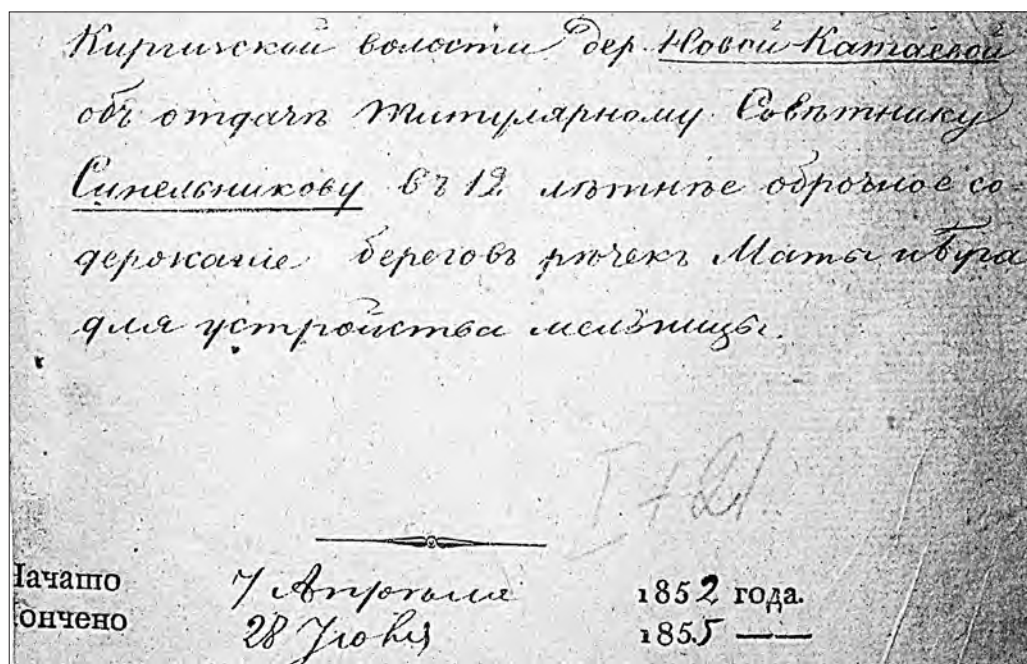 Киргизской волости дер. Новой-Катаевой
объ отдачѣ Титулярному Совѣтнику
Синельникову въ 12 лѣтнѣе оброчное со-
держаніе береговъ рѣчекъ Маты и Буга
для устройства мельницы.
I + 21.
Начато 7 Апрѣля 1852 года.
Кончено 28 Іюня 1855 ——